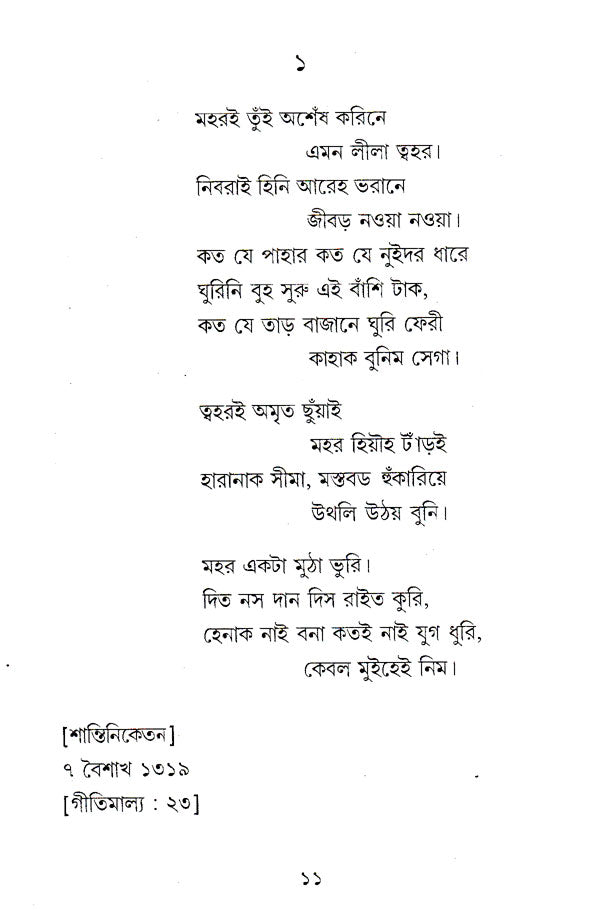 ১
মহরই তুঁই অশেঁষ করিনে
এমন লীলা ত্বহর।
নিবরাই হিনি আরেহ ভরানে
জীবড় নওয়া নওয়া।
কত যে পাহার কত যে নুইদর ধারে
ঘুরিনি বুহ সুরু এই বাঁশি টাক,
কত যে তাড় বাজানে ঘুরি ফেরী
কাহাক বুনিম সেগা।
ত্বহরই অমৃত ছুঁয়াই
মহর হিয়ীহ টাঁড়ই
হারানাক সীমা, মস্তবড হুঁকারিয়ে
উথলি উঠয় বুনি।
মহর একটা মুঠা ভুরি।
দিত নস দান দিস রাইত কুরি,
হেনাক নাই বনা কতই নাই যুগ ধুরি,
কেবল মুইহেই নিম।
[শান্তিনিকেতন]
৭ বৈশাখ ১৩১৯
[গীতিমাল্য : ২৩]
১১